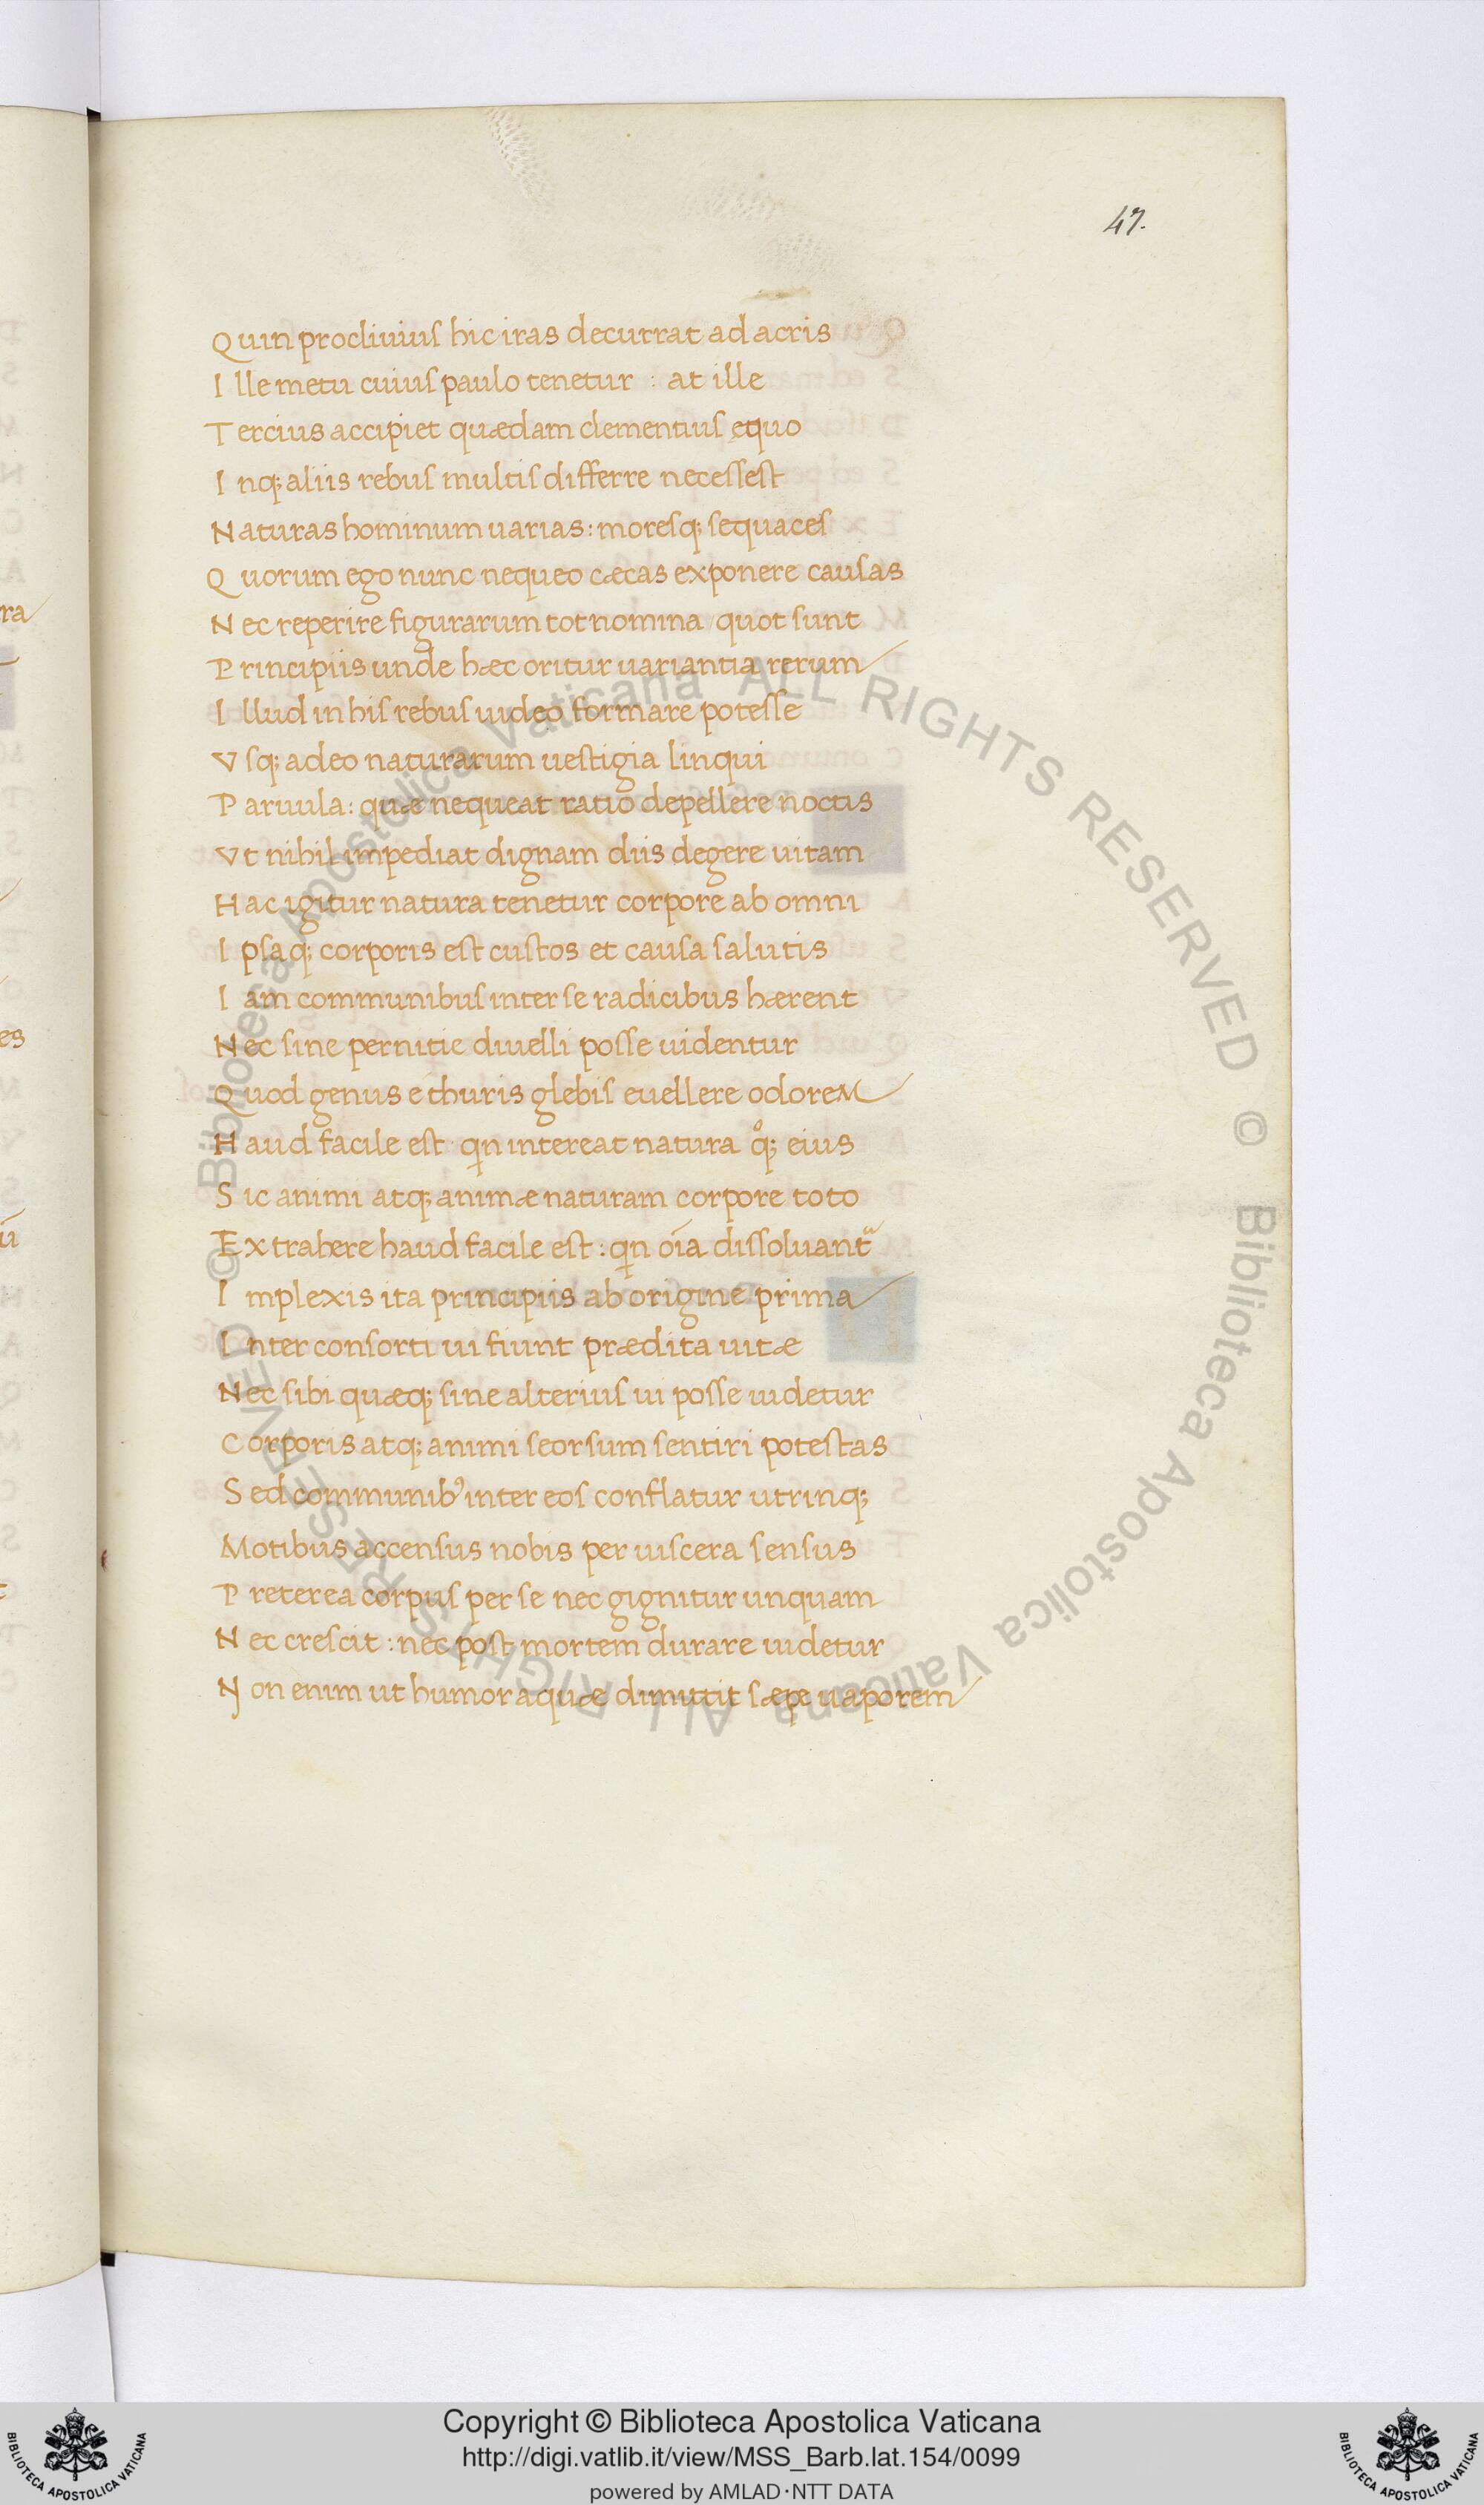 47.
Quin procliuius hic iras decurrat ad acris
Ille metu cuius paulo tenetur : at ille
Tercius accipiet quædam clementius equo
Inq; aliis rebus multis differre necessest
Naturas hominum uarias : moresq; sequaces
Quorum ego nunc nequeo cæcas exponere causas
Nec reperire figurarum tot nomina quot sunt
Principiis unde hæc oritur uariantia rerum
Illud in his rebus uideo formare potesse
Vsq; adeo naturarum uestigia linqui
Paruula : quæ nequeat ratio depellere noctis
Vt nihil impediat dignam diis degere uitam
Hac igitur natura tenetur corpore ab omni
Ipsaq; corporis est custos et causa salutis
Iam communibus inter se radicibus hærent
Nec sine pernitie diuelli posse uidentur
Quod genus e thuris glebis euellere odoreM
Haud facile est qin intereat natura qͦq; eius
Sic animi atq; animæ naturam corpore toto
Extrahere haud facile est : qin oīa dissoluantᷓ
Implexis ita principiis ab origine prima
Inter consorti ui fiunt prædita uitæ
Nec sibi quæq; sine alterius ui posse uidetur
Corporis atq; animi seorsum sentiri potestas
Sed communibꝰ inter eos conflatur utrinq;
Motibus accensus nobis per uiscera sensus
Preterea corpus per se nec gignitur unquam
Nec crescit : nec post mortem durare uidetur
Non enim ut humor aquæ dimittit sæpe uaporem
© Biblioteca Apostolica Vaticana ALL RIGHTS RESERVED © Biblioteca Apostolica Vaticana ALL RIGHTS RESERVED
Copyright © Biblioteca Apostolica Vaticana
http://digi.vatlib.it/view/MSS_Barb.lat.154/0099
powered by AMLAD·NTT DATA
BIBLIOTECA APOSTOLICA VATICANA
BIBLIOTECA APOSTOLICA VATICANA